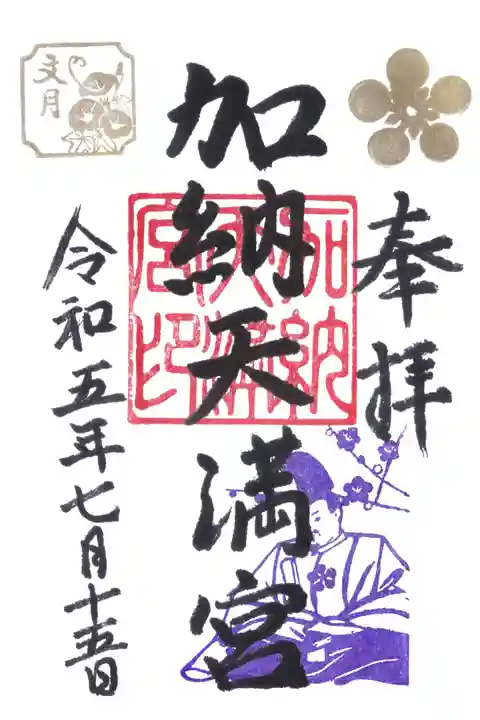 奉拝
加納天満宮
加納天満宮印
文月
令和五年七月十五日